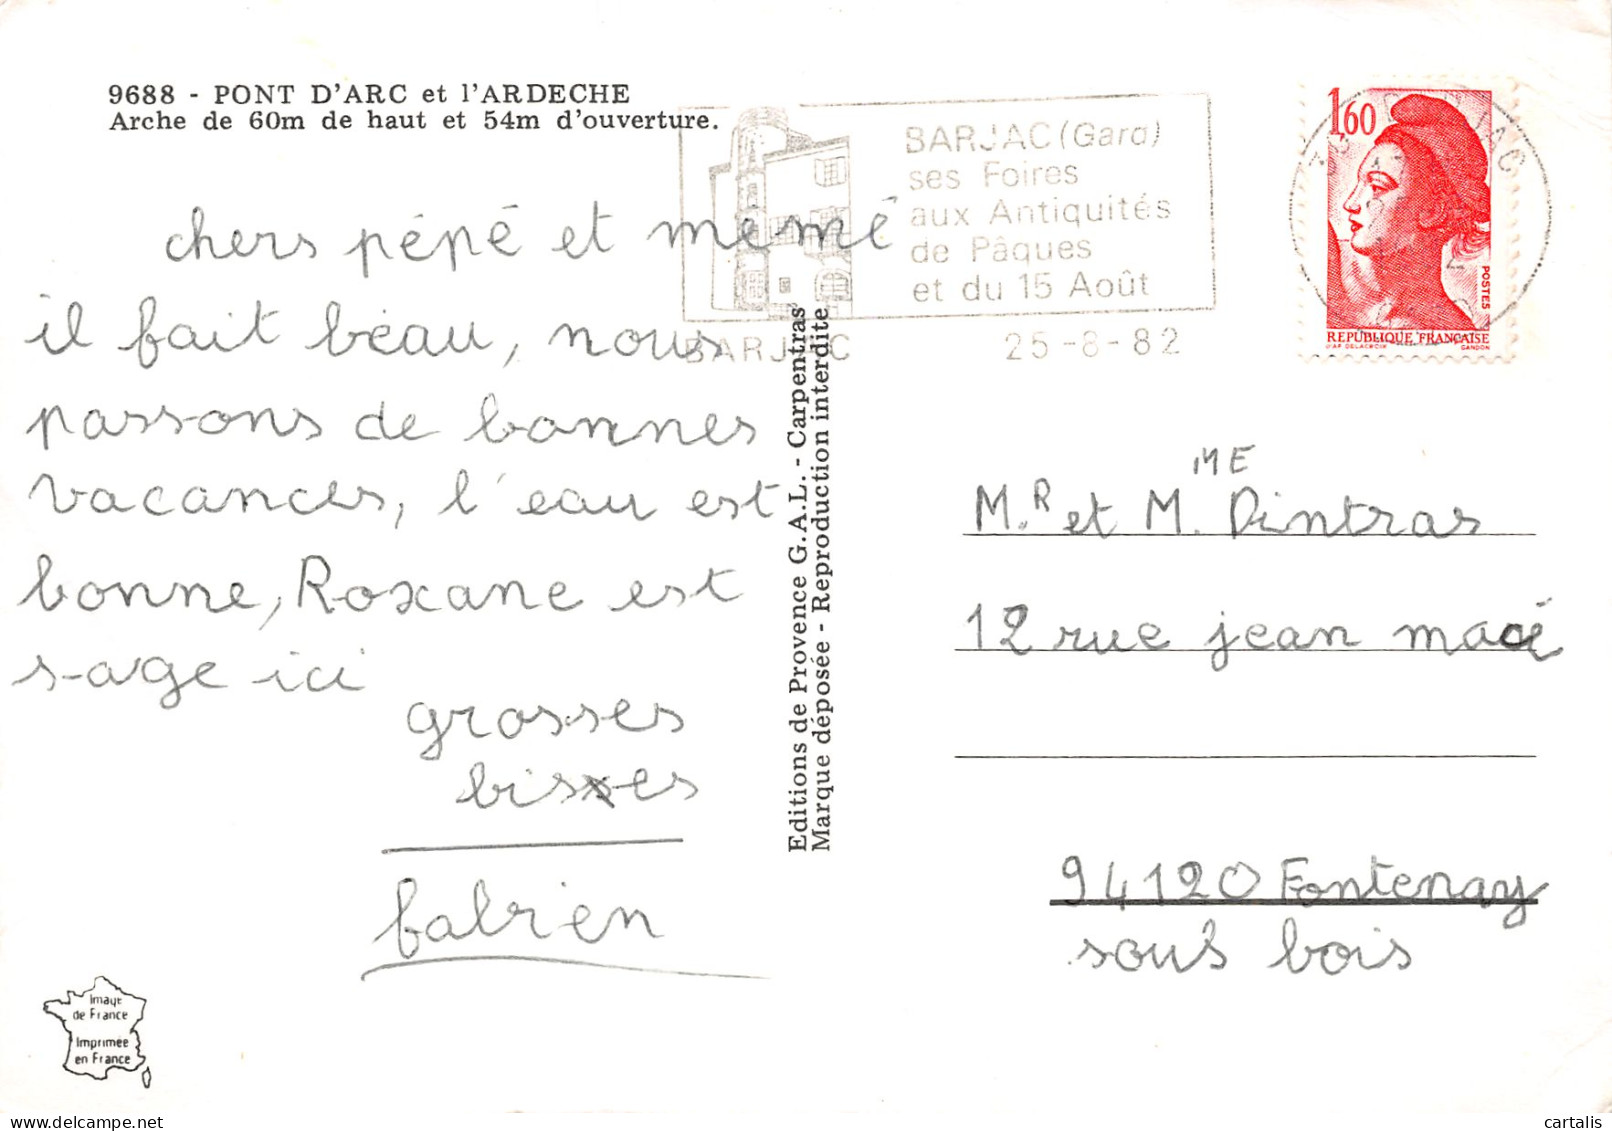 9688 - PONT D'ARC et l'ARDECHE
Arche de 60m de haut et 54m d'ouverture.
chers pépé et mémé
il fait beau, nous
passons de bonnes
vacances, l'eau est
bonne, Roxane est
sage ici
grosses
bises
fabien
Image
de France
Imprimée
en France
Editions de Provence G.A.L. - Carpentras
Marque déposée - Reproduction interdite
BARJAC (Gard)
ses Foires
aux Antiquités
de Pâques
et du 15 Août
BARJAC
25-8-82
1,60
POSTES
REPUBLIQUE FRANÇAISE
D'AP. DELACROIX GANDON
M.R et M.ME Dintras
12 rue jean macé
94120 Fontenay
sous bois
cartalis